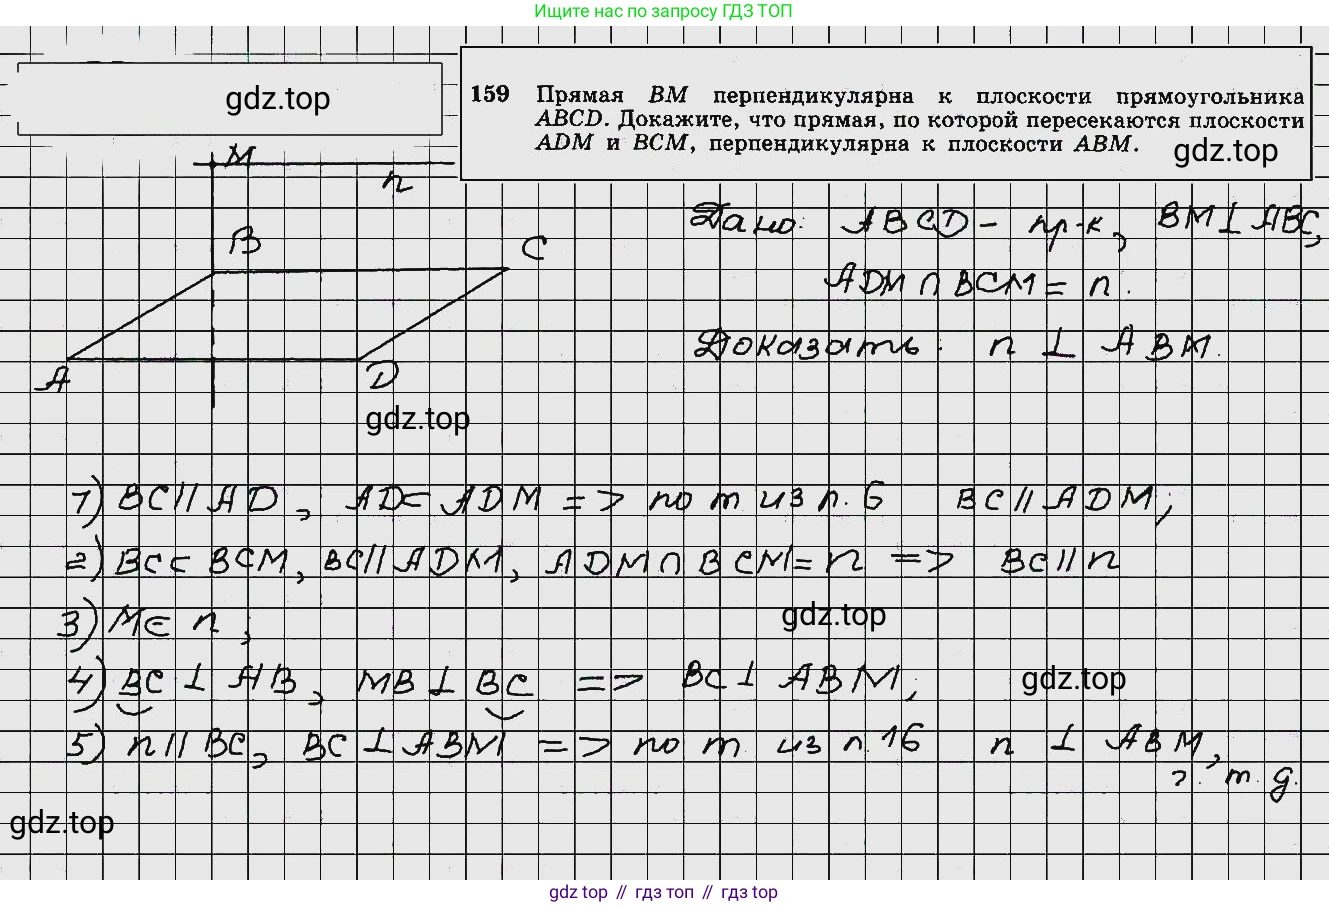 Ищите нас по запросу ГДЗ ТОП
gdz.top
159 Прямая BM перпендикулярна к плоскости прямоугольника
ABCD. Докажите, что прямая, по которой пересекаются плоскости
ADM и BCM, перпендикулярна к плоскости ABM.
gdz.top
M
n
B
C
A
D
gdz.top
Дано: ABCD - пр-к, BM⊥ABC,
ADM∩BCM = n.
Доказать: n ⊥ ABM.
1) BC∥AD, AD⊂ADM => по т из п. 6 BC∥ADM;
2) BC⊂BCM, BC∥ADM, ADM∩BCM=n => BC∥n
3) M∈n;
gdz.top
4) BC⊥AB, MB⊥BC => BC⊥ABM;
gdz.top
5) n∥BC, BC⊥ABM => по т из п.16 n ⊥ ABM,
т.д.
gdz.top
gdz top // гдз топ // gdz top